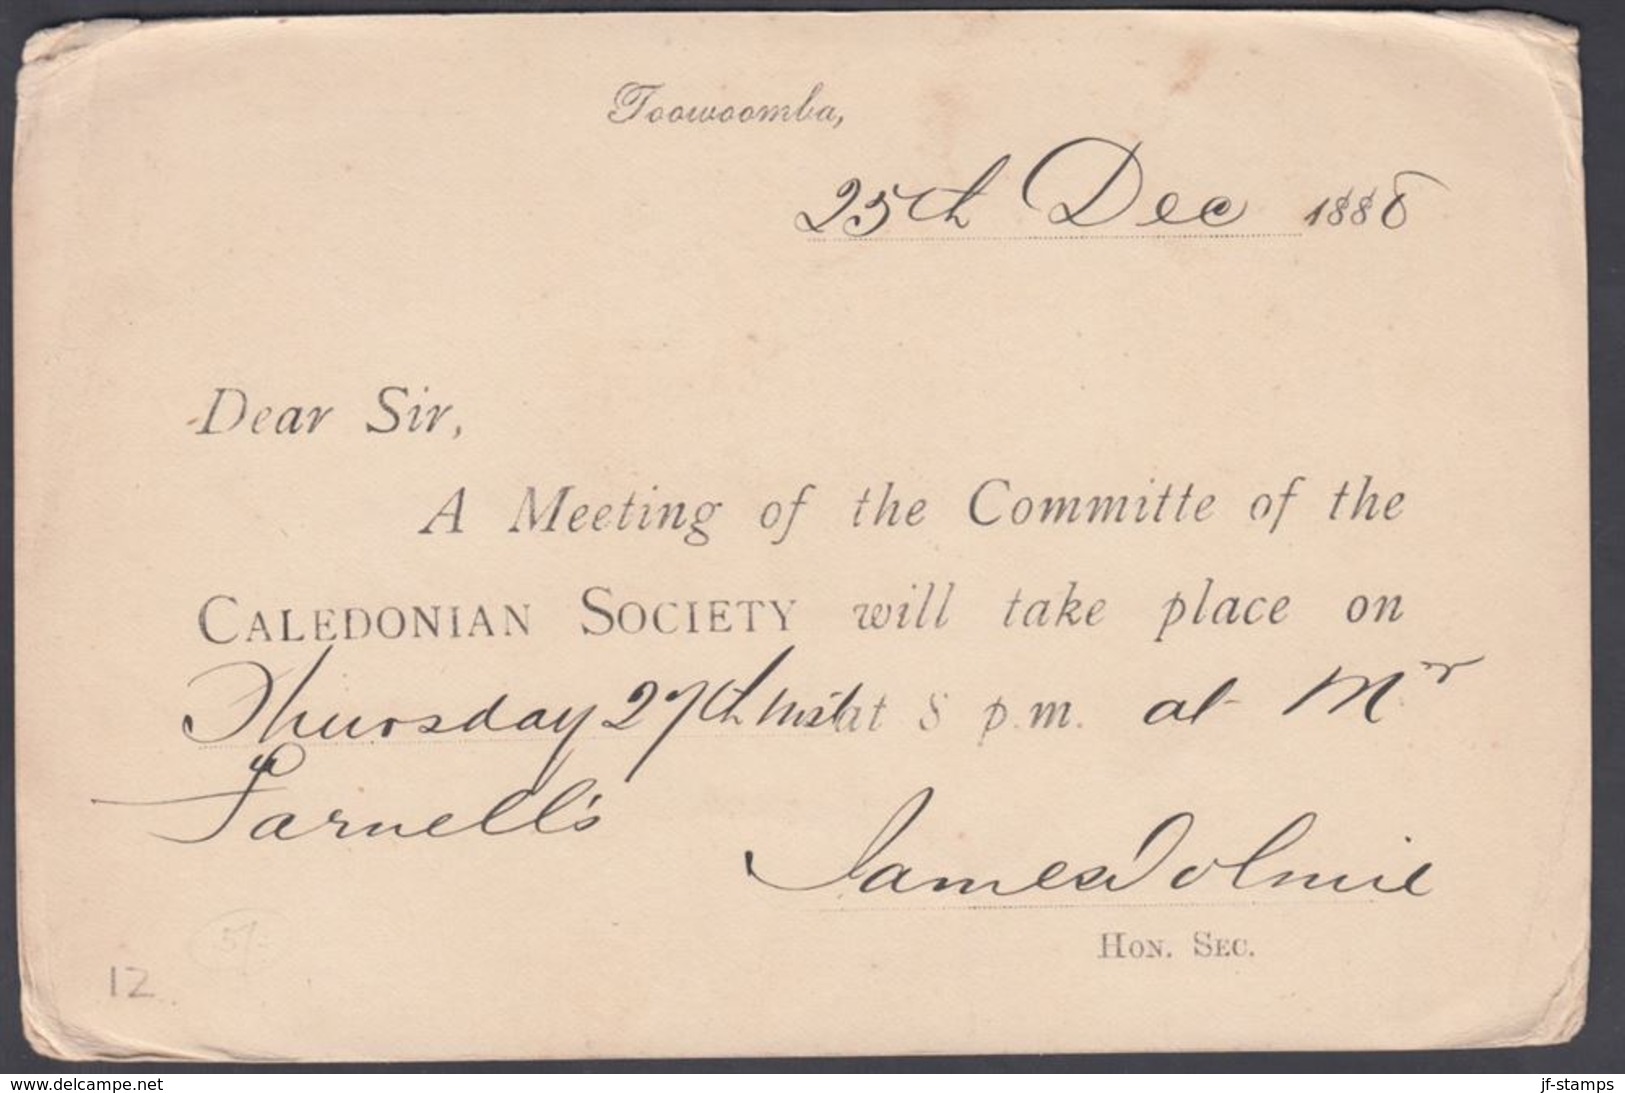 Toowoomba,
25th Dec 1888
Dear Sir,
A Meeting of the Committe of the
CALEDONIAN SOCIETY will take place on
Thursday 27th inst at 8 p.m. at Mr
Farnell's
James Dolmie
HON. SEC.
5/-
12
www.delcampe.net
jf-stamps